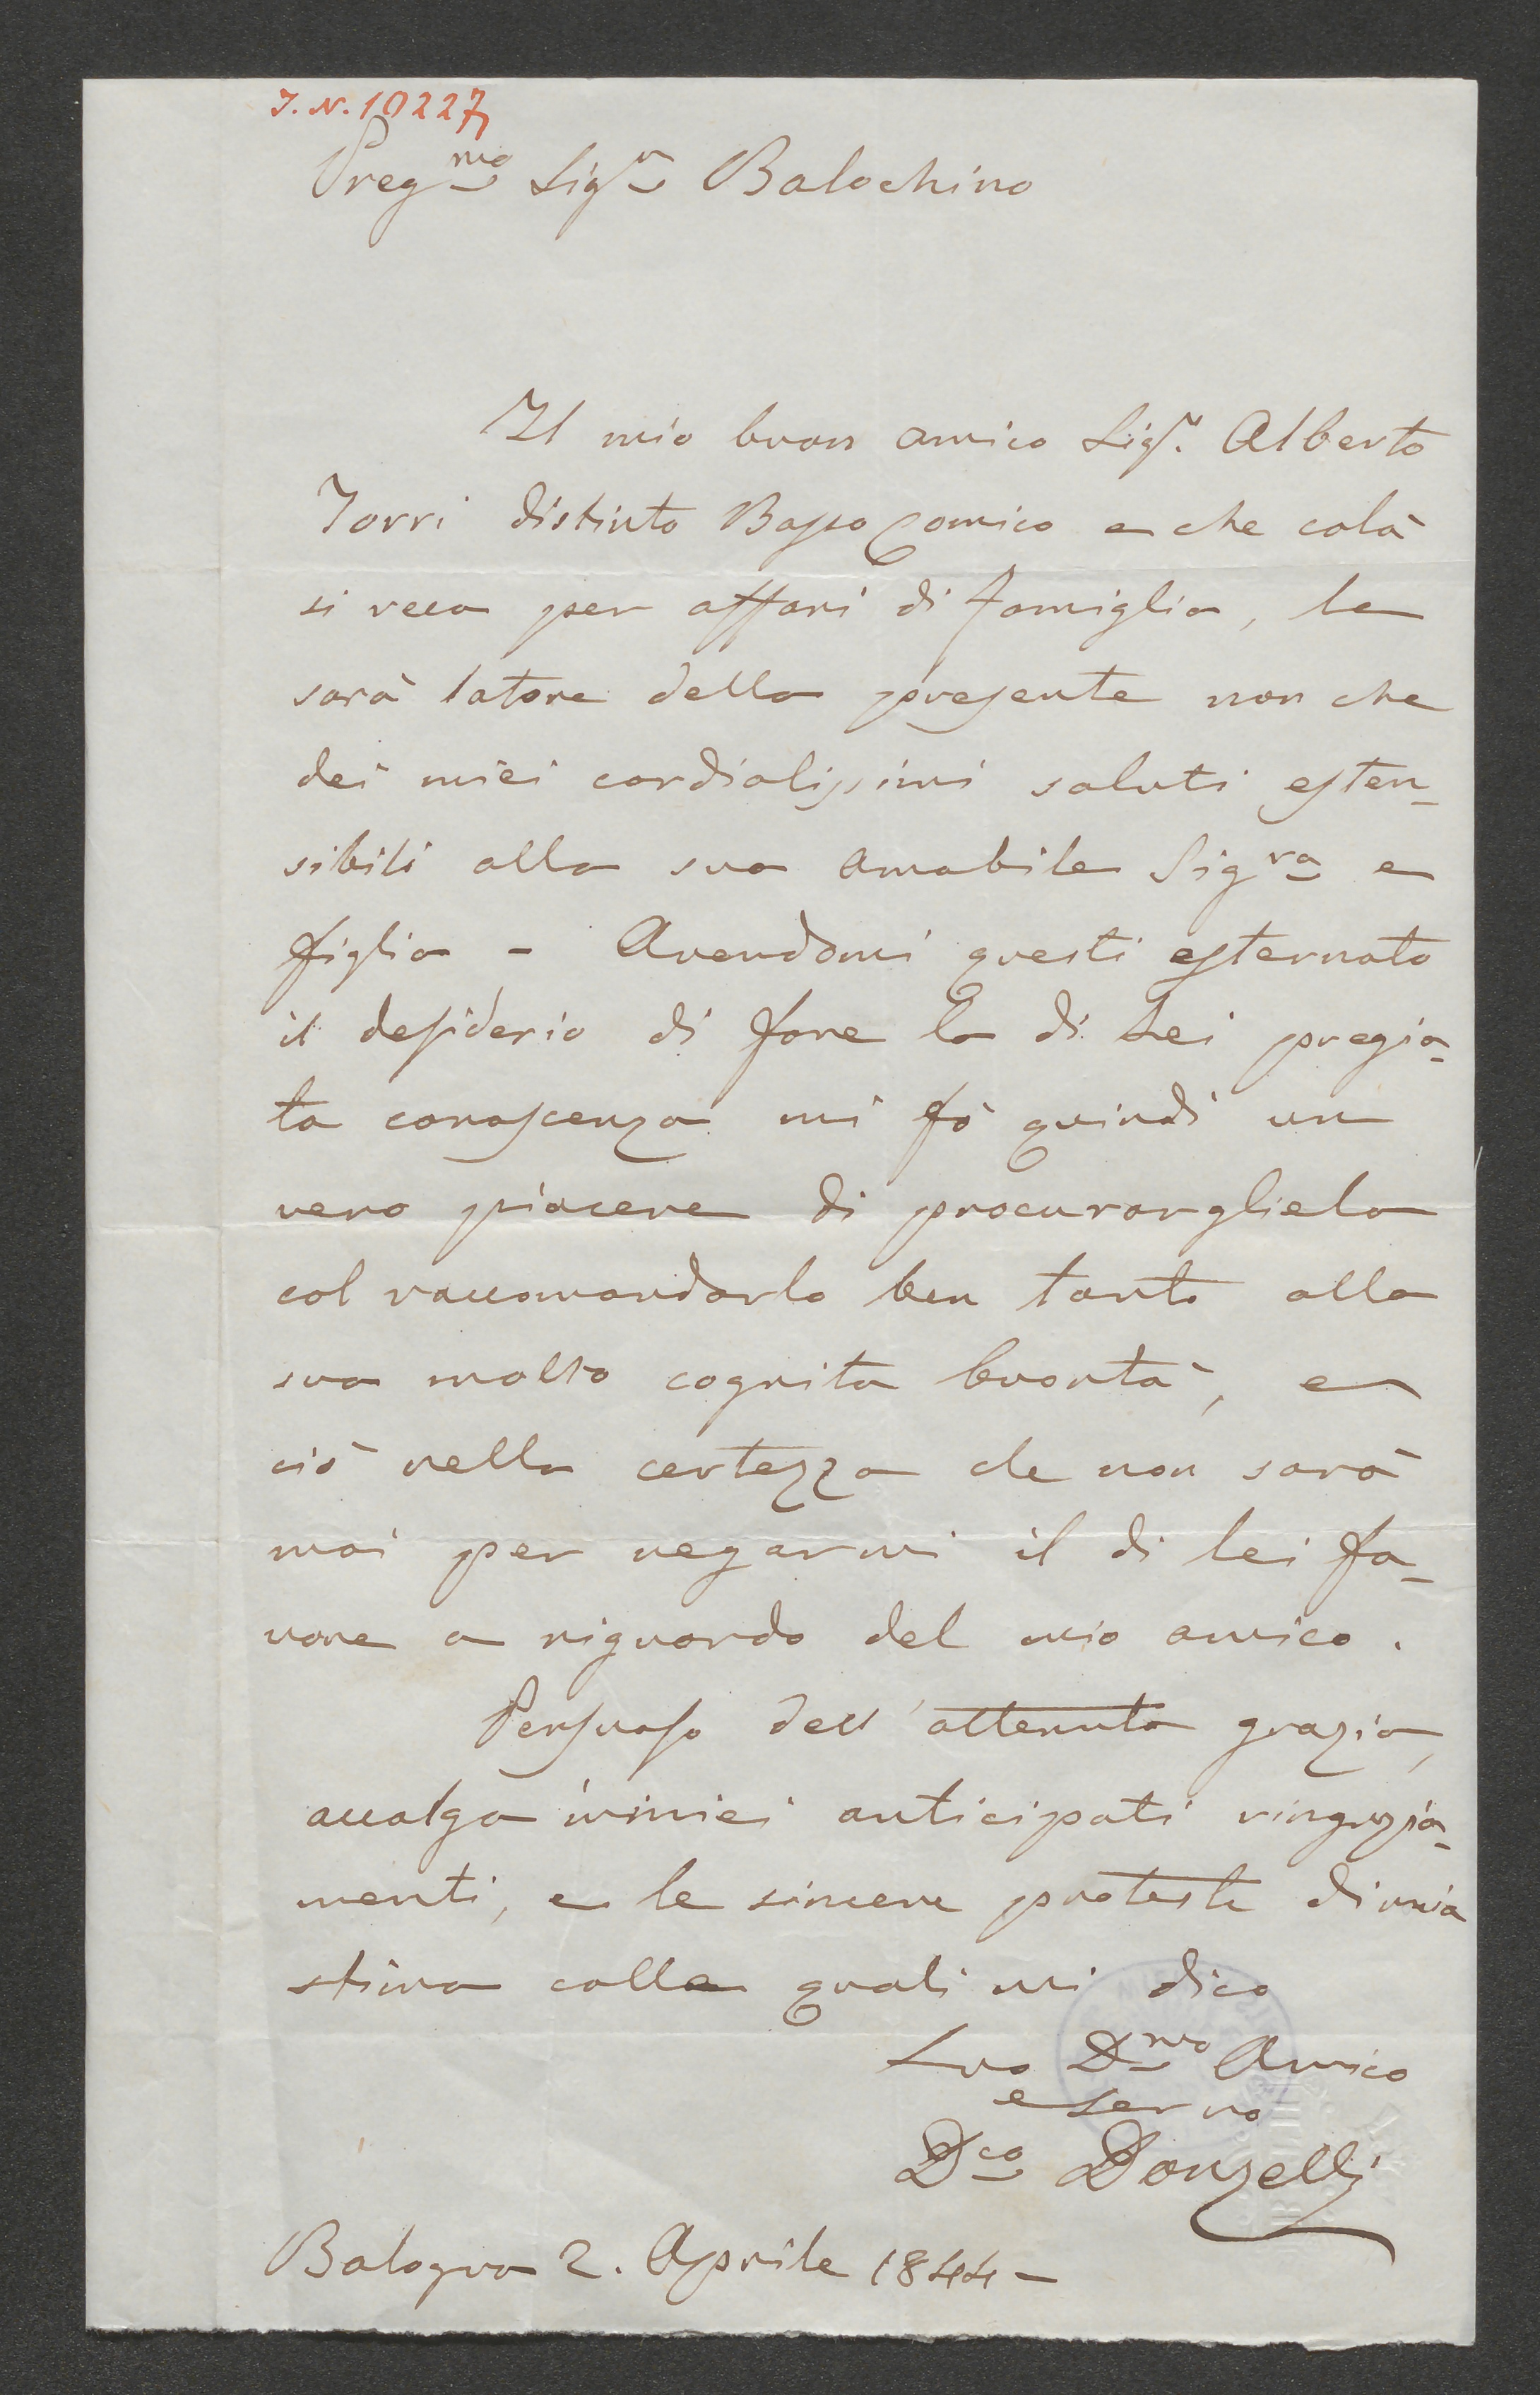 J. N. 10227
Preg.mo Sig.r Balochino
Il mio buon amico Sigr. Alberto
Torri distinto Basso Comico e che colà
si reca per affari di famiglia, le
sarà latore della presente non che
dei miei cordialissimi saluti esten-
sibili alla sua amabile Sig.ra e
figlia - Avendomi questi esternato
il desiderio di fare la di Lei pregia-
ta conoscenza mi fò quindi un
vero piacere di procurargliela
col raccomandarlo ben tanto alla
sua molto cognita buontà, e
ciò nella certezza che non sarà
mai per negarmi il di lei fa-
vore a riguardo del mio amico.
Persuaso dell'ottenuta grazia,
accolga i miei anticipati ringrazia-
menti, e le sincere proteste di mia
stima colle quali mi dico
Suo D.mo Amico
e servo
D.co Donzelli
Bologna 2. Aprile 1844 -